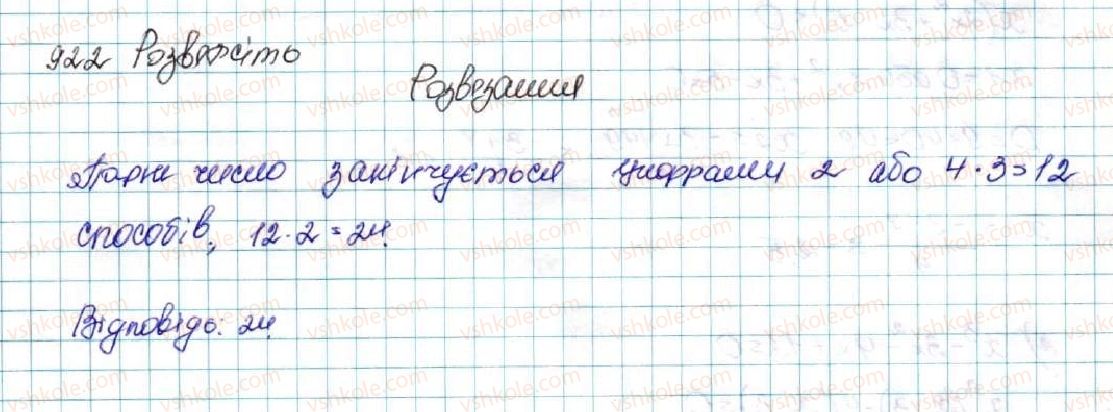 922 Розвяжіть
Розвезання
Парне число закінчується цифрами 2 або 4·3=12
способів, 12·2=24.
Відповідь: 24.